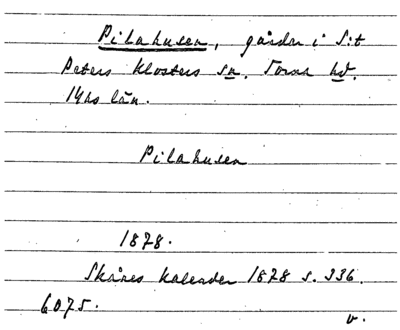 Pilahusen, gårdar i S:t
Peters Klosters sn. Torna hd.
Mhs län.
Pilahusen
1878.
Skånes kalender 1878 s. 336.
6075.
v.